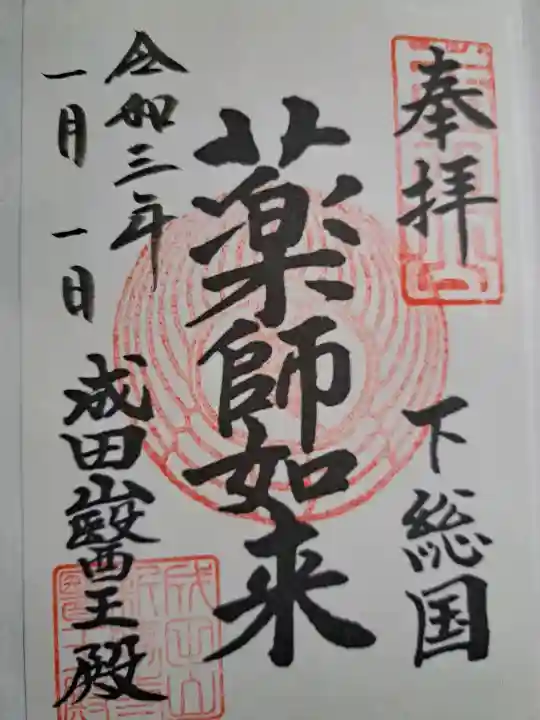 奉拝
下総国
薬師如来
令和三年
一月 一日
成田山醫王殿